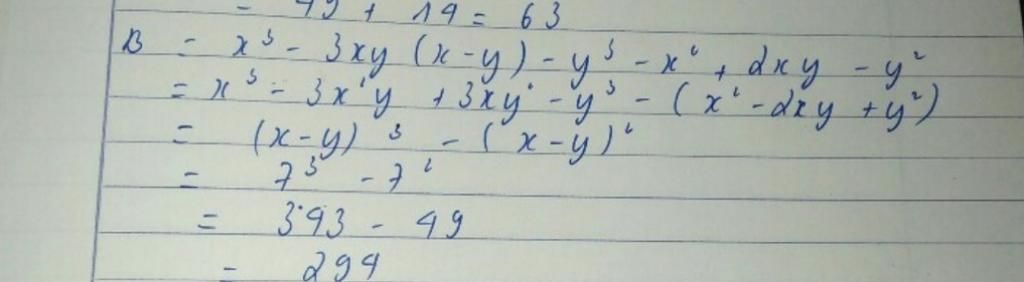 = 49 + 14 = 63
B = x³ - 3xy (x-y) - y³ - x² + 2xy - y²
= x³ - 3x²y + 3xy² - y³ - (x² - 2xy + y²)
= (x-y)³ - (x-y)²
= 7³ - 7²
= 343 - 49
= 294